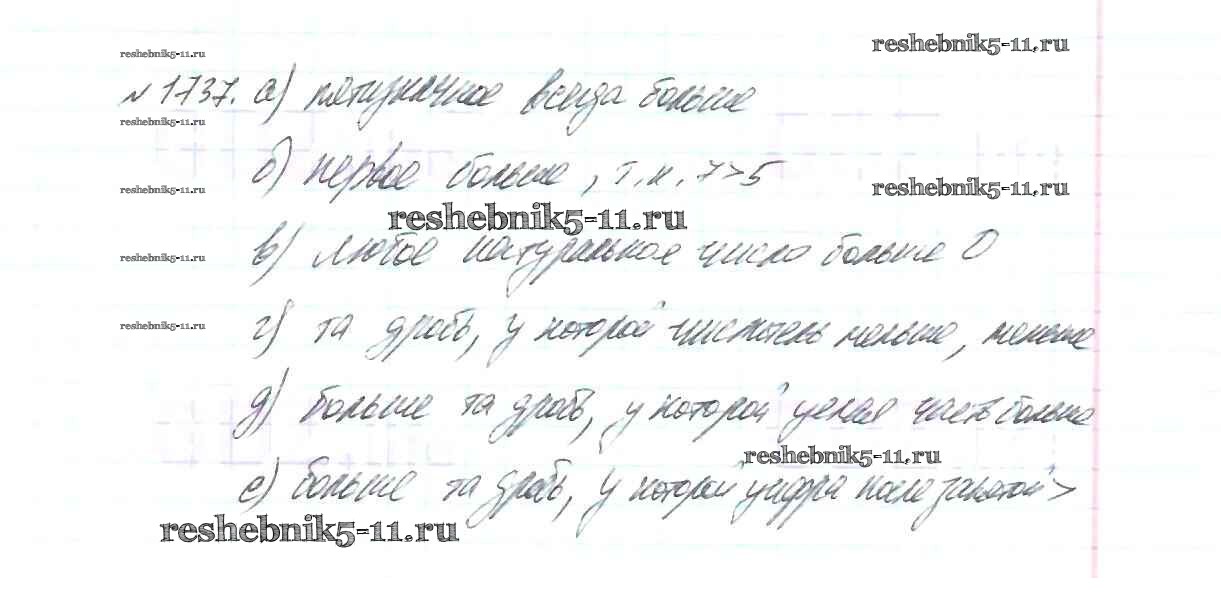 reshebnik5-11.ru
reshebnik5-11.ru
№ 1737. а) пятизначное всегда больше
reshebnik5-11.ru
б) первое больше, т.к. 7>5
reshebnik5-11.ru
reshebnik5-11.ru
reshebnik5-11.ru
в) любое натуральное число больше 0
reshebnik5-11.ru
г) та дробь, у которой числитель меньше, меньше
reshebnik5-11.ru
д) больше та дробь, у которой целая часть больше
reshebnik5-11.ru
е) больше та дробь, у которой цифра после запятой >
reshebnik5-11.ru